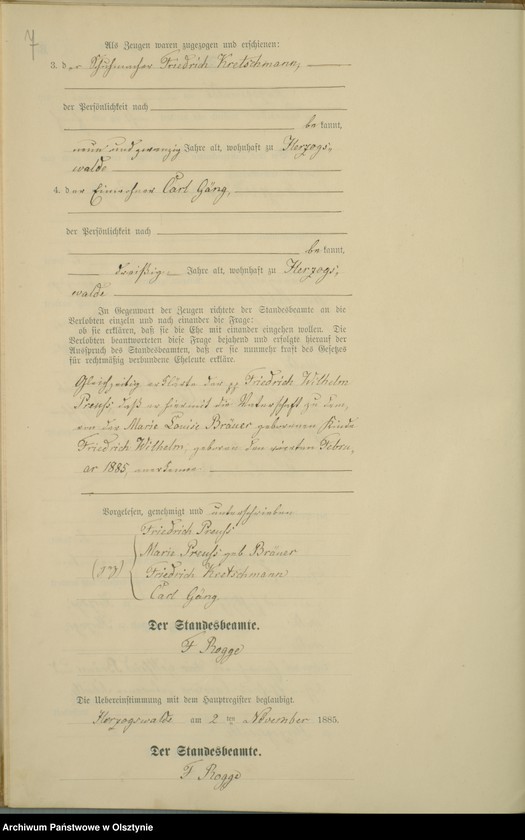 7
Als Zeugen waren zugezogen und erschienen:
3. der Schuhmacher Friedrich Kretschmann,
der Persönlichkeit nach
bekannt,
neun und zwanzig Jahre alt, wohnhaft zu Herzogs-
walde
4. der Einwohner Carl Gäng,
der Persönlichkeit nach
bekannt,
dreißig Jahre alt, wohnhaft zu Herzogs-
walde
In Gegenwart der Zeugen richtete der Standesbeamte an die
Verlobten einzeln und nach einander die Frage:
ob sie erklären, daß sie die Ehe mit einander eingehen wollen. Die
Verlobten beantworteten diese Frage bejahend und erfolgte hierauf der
Ausspruch des Standesbeamten, daß er sie nunmehr kraft des Gesetzes
für rechtmäßig verbundene Eheleute erkläre.
Gleichzeitig erklärte der pp Friedrich Wilhelm
Preuß, daß er hiermit die Vaterschaft zu dem,
von der Marie Louise Bräuer geborenen Kinde
Friedrich Wilhelm, geboren den vierten Febru-
ar 1885, anerkenne.
Vorgelesen, genehmigt und unterschrieben
Friedrich Preuß
Marie Preuß geb Bräuer
(gez) Friedrich Kretschmann
Carl Gäng
Der Standesbeamte.
F Rogge
Die Uebereinstimmung mit dem Hauptregister beglaubigt.
Herzogswalde am 2 ten November 1885.
Der Standesbeamte.
F Rogge
Archiwum Państwowe w Olsztynie